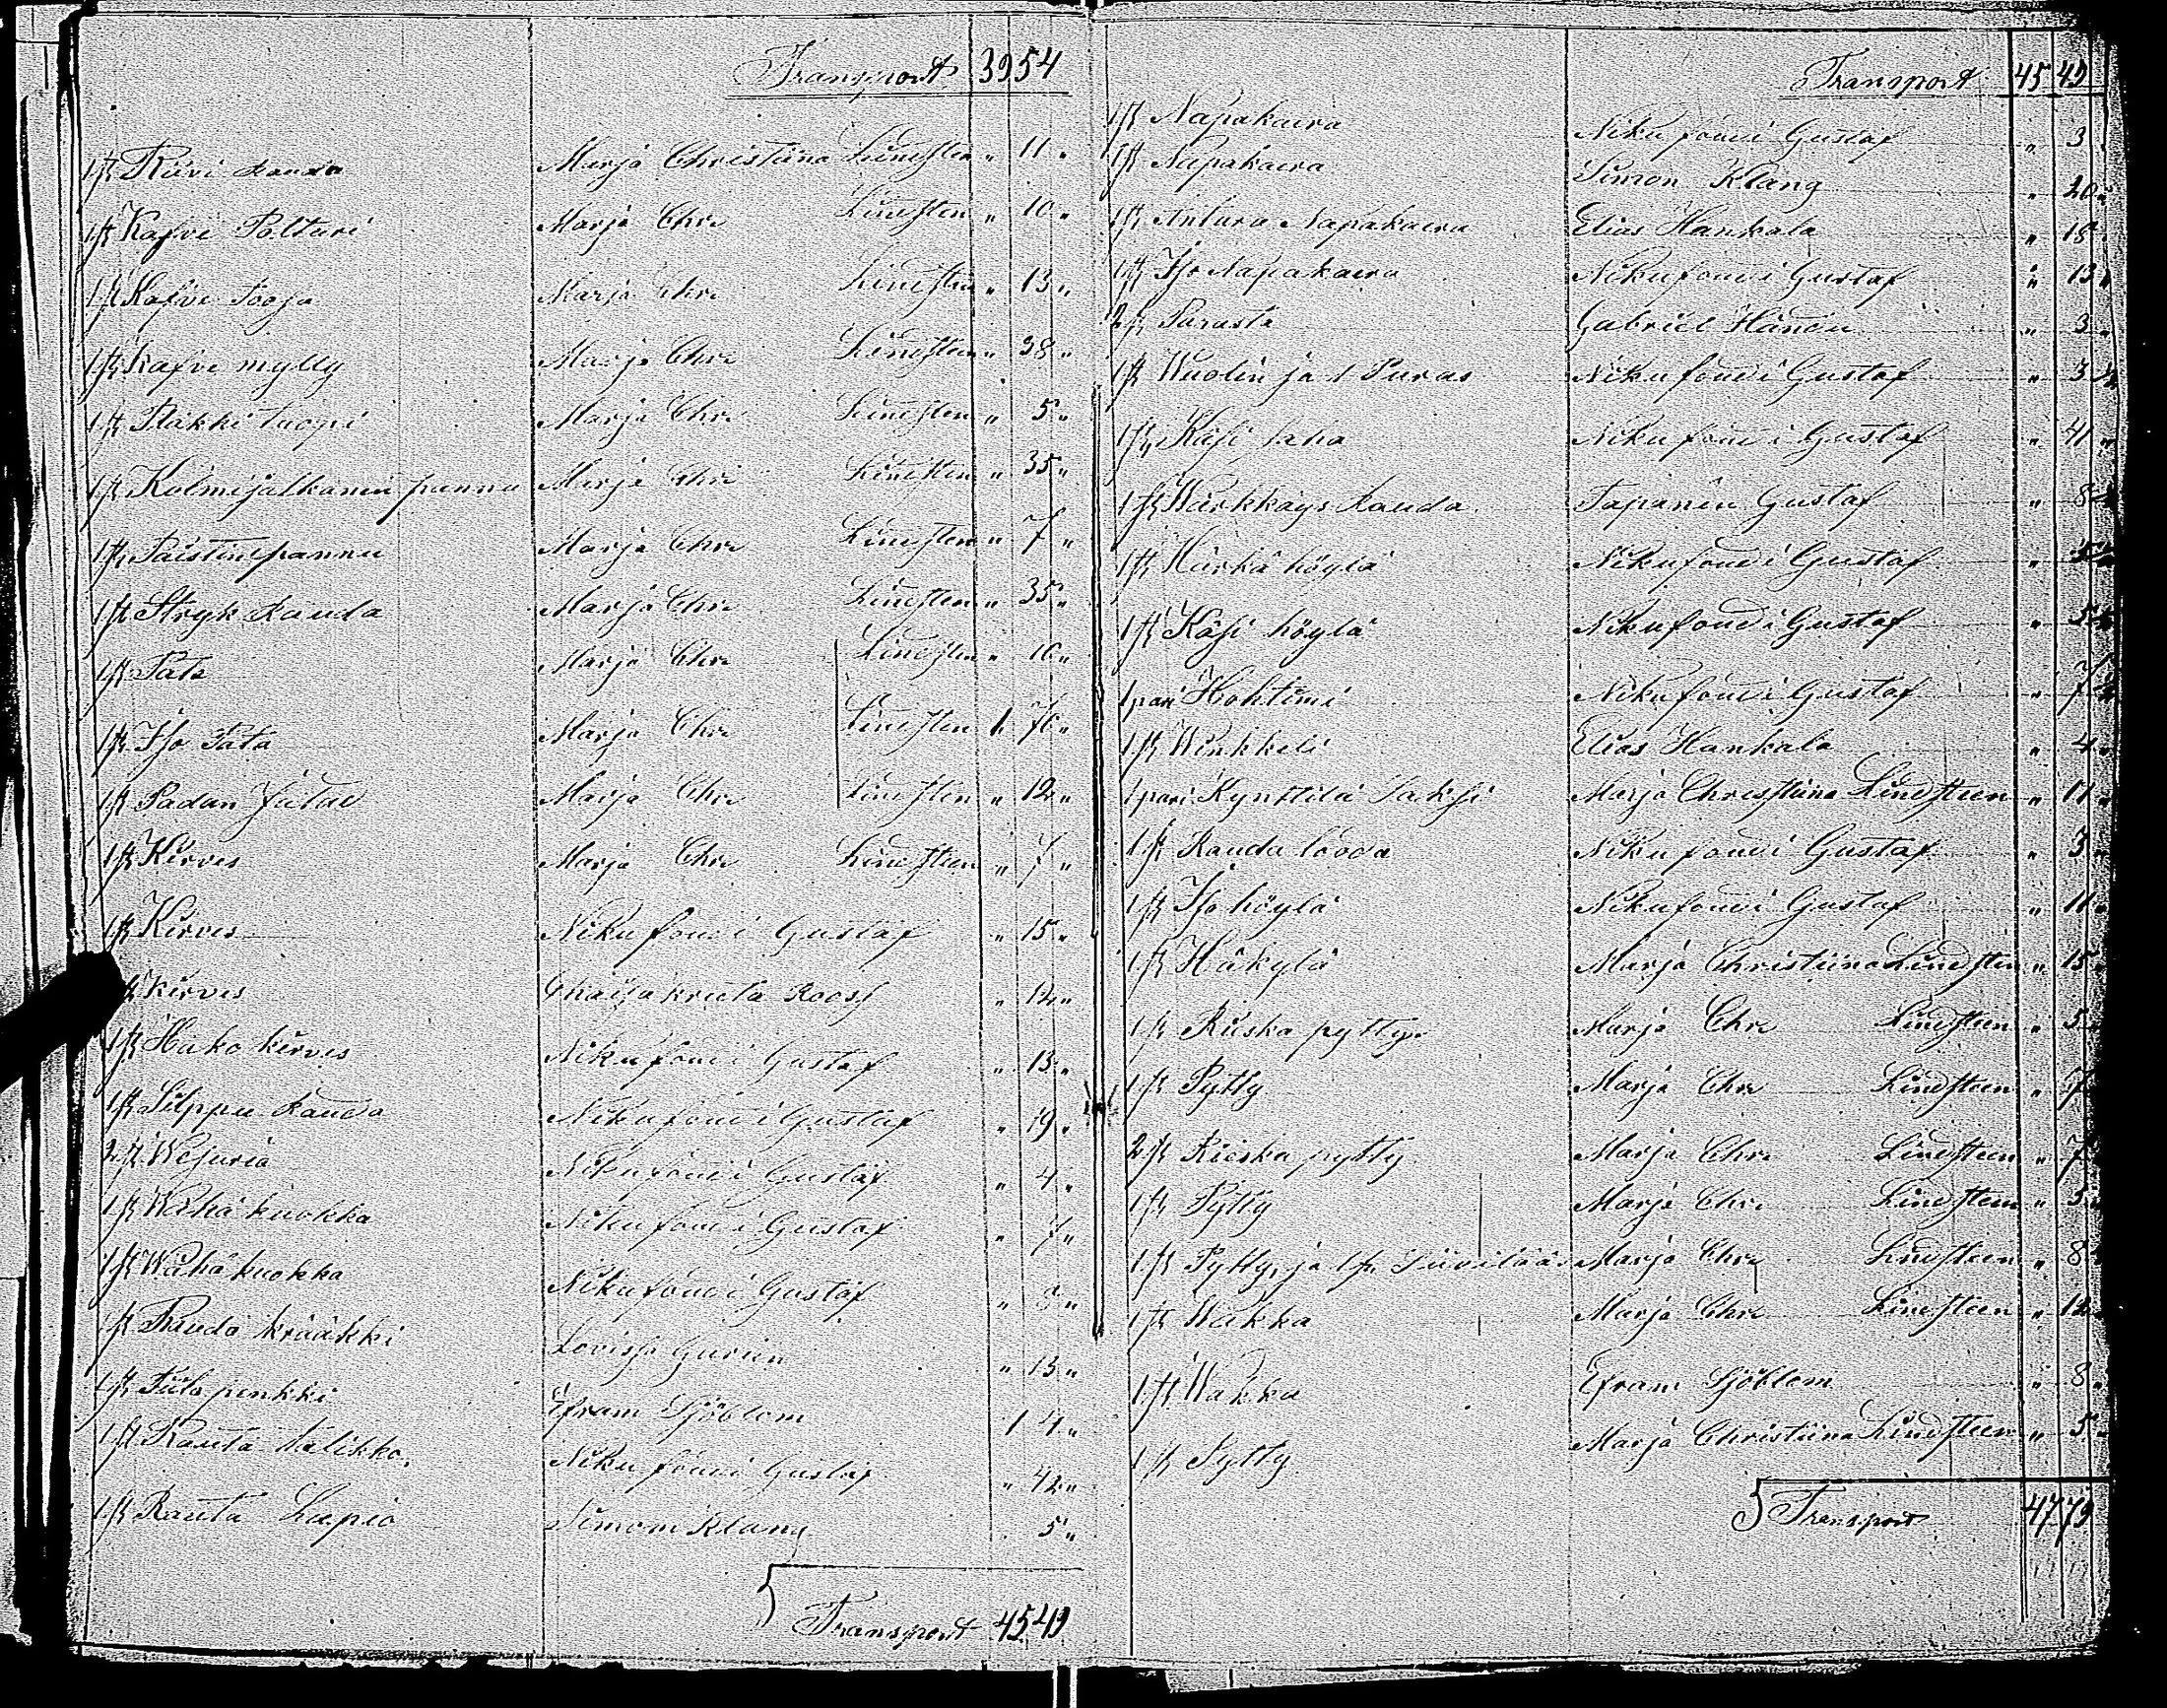 Transport 39 54
1 st Riivi Rauda Marja Christiina Lindsten " 11 "
1 st Kafve Polturi Marja Chr: Lindsten " 10 "
1 st Kafve Tooja Marja Chr: Lindsten " 13 "
1 st Kafve mylly Marja Chr: Lindsten " 38 "
1 st Pläkki tuopi Marja Chr: Lindsten " 5 "
1 st Kolmijalkanen pannu Marja Chr: Lindsten " 35 "
1 st Paistinpannu Marja Chr: Lindsten " 7 "
1 st Stryk Rauda Marja Chr: Lindsten " 35 "
1 st Pata Marja Chr: Lindsten " 10 "
1 st Iso Pata Marja Chr: Lindsten 1 76 "
1 st Padan Marja Chr: Lindsten " 12 "
1 st Kirves Marja Chr: Lindsten " 7 "
1 st Kirves Gustaf " 15 "
st Kirves Roos " 12 "
1 st Hako kirves Gustaf " 13 "
1 st Silppu Rauda Gustaf " 19 "
2 st Wesuria Gustaf " 4 "
1 st Wähä kuokka Gustaf " 7 "
1 st Wähä kuokka Gustaf "
1 st Rauda krääkki Lovisa " 13 "
1 st penkki Efram Sjöblom 1 4 "
1 st Rauta Talikko Gustaf " 42 "
1 st Rauta Lapio Simom Klang " 5 "
Transport 45 49
Transport 45 49
1 st Napakaira Gustaf " 3
1 st Napakaira Simon Klang " 20 "
1 st Antura Napakaira Elias Hankala " 18
1 st Iso Napakaira Gustaf " 13 "
2 st Purasta Gabriel " 3 "
1 st Wuolin ja 1 Puras Gustaf " 3 "
1 st Käsi saha Gustaf " 41 "
1 st Rauda Tapanin Gustaf " 8 "
1 st Härkä höylä Gustaf "
1 st Käsi höylä Gustaf " 5
1 pari Hohtimi Gustaf " 7
1 st Winkkeli Elias Hankala " 4 "
1 pari Kynttilä Saksi Marja Christiina Lindsteen " 11 "
1 st Rauda looda Gustaf " 3 "
1 st Iso höylä Gustaf " 11 "
1 st Häkylä Marja Christiina Lindsten " 15
1 st Riiska pytty Marja Chr: Lindsteen " 5
1 st Pytty Marja Chr: Lindsteen " 7
2 st Rieska pytty Marja Chr: Lindsteen " 7
1 st Pytty Marja Chr: Lindsteen " 5
1 st Pytty, ja 1 st Marja Chr: Lindsteen " 8
1 st Wakka Marja Chr: Lindsteen " 12
1 st Wakka Efram Sjöblom " 8 "
1 st Pytty Marja Christiina Lindsteen " 5 "
Transport 47 79